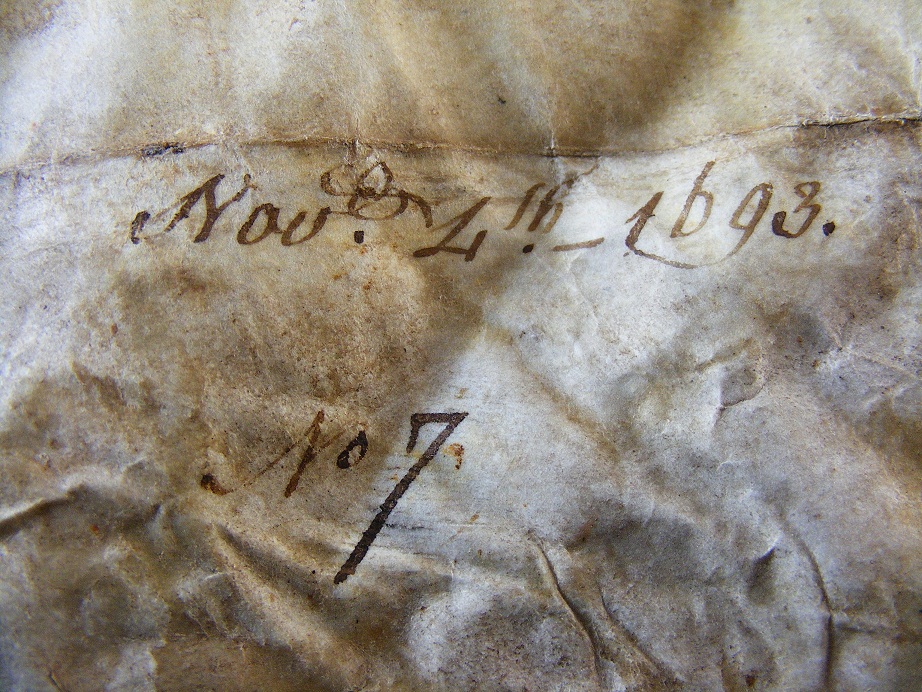 Novr. 4th. - 1693.
No 7